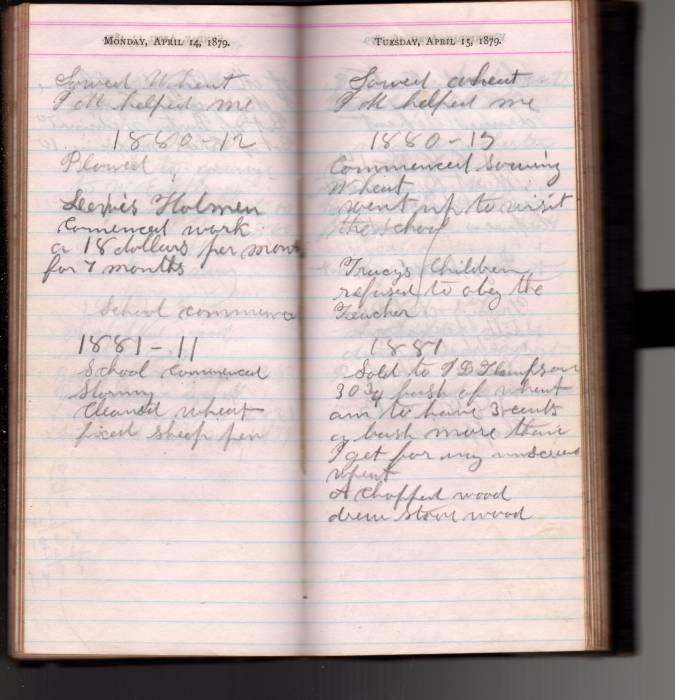 Monday, April 14, 1879.
Sowed Wheat
I M helped me
1880-12
Plowed
Lewis Holmen
comenced work
a 18 dollars per month
for 7 months
School commence
1881-11
School commenced
Stormy
Cleaned wheat
fixed sheep pen
Tuesday, April 15, 1879.
Sowed wheat
I M helped me
1880-13
Commenced Sowing
Wheat
went up to visit
the school
Tracys Children
refused to obey the
Teacher
1881
Sold to
30 3/4 bush of wheat
am to have 3 cents
a bush more than
I get for my
wheat
A chopped wood
drew stove wood